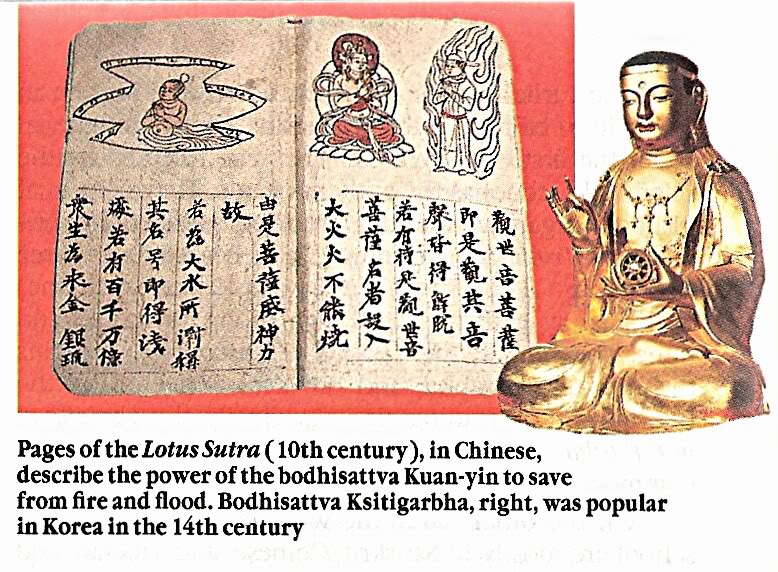 觀世音菩薩
即是觀其音
聲皆得解脱
若有持是觀世音
菩薩名者設入
大火火不能燒
由是菩薩威神力
故
若為大水所漂稱
其名号即得淺
處若有百千万億
衆生為求金銀琉
Pages of the Lotus Sutra (10th century), in Chinese,
describe the power of the bodhisattva Kuan-yin to save
from fire and flood. Bodhisattva Ksitigarbha, right, was popular
in Korea in the 14th century